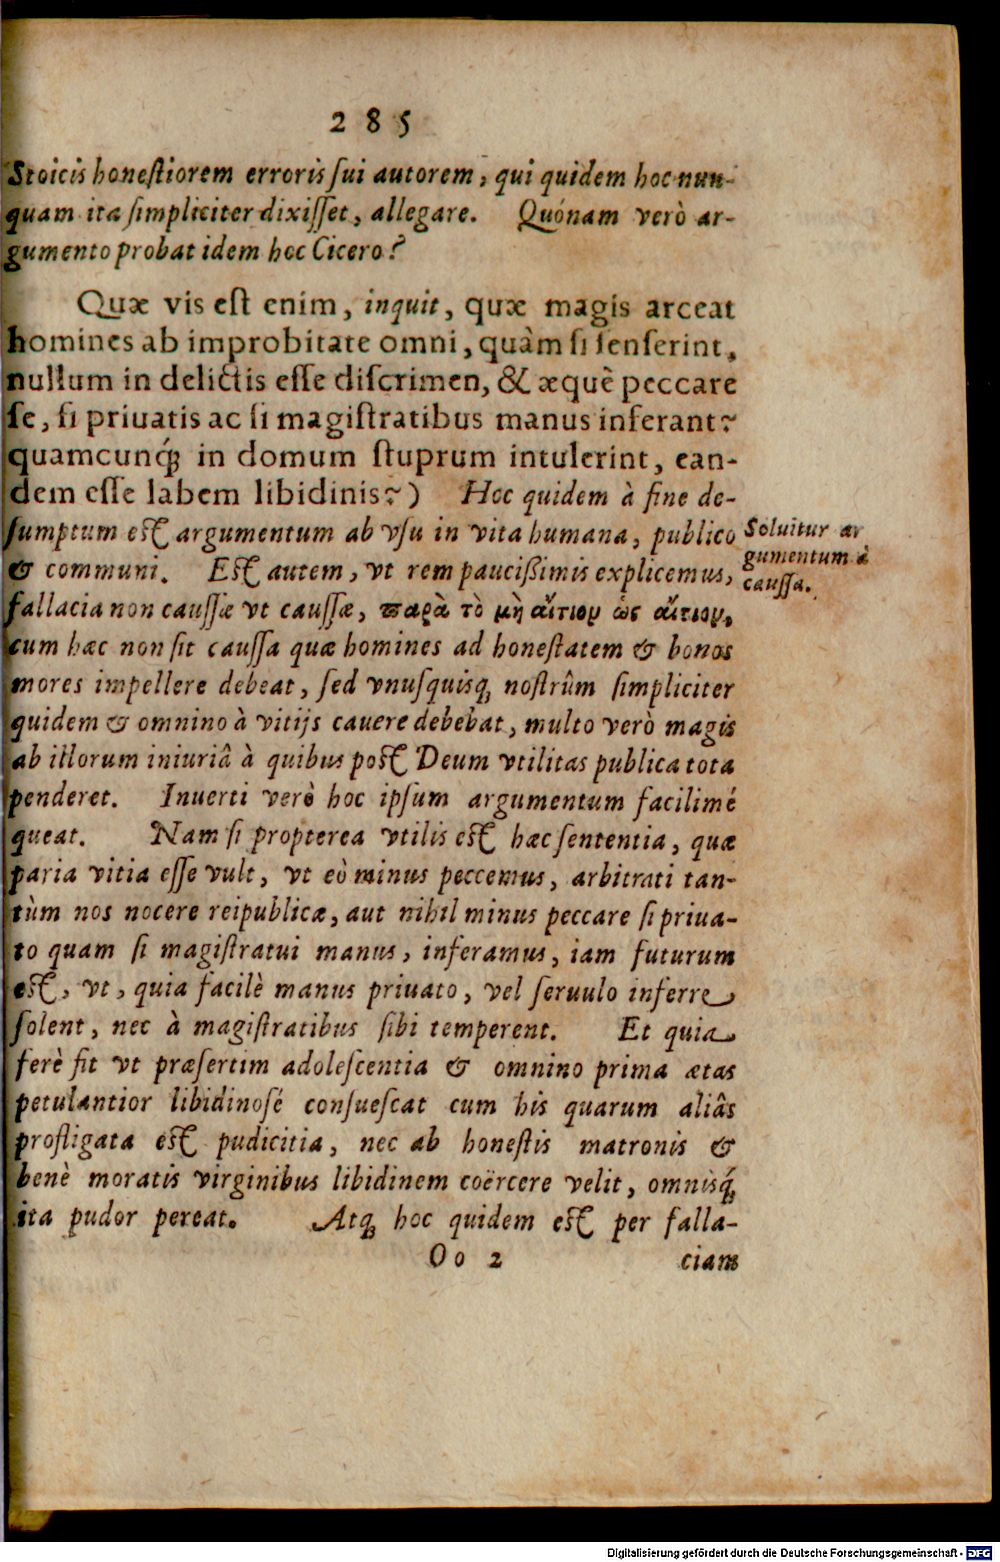 2 8 5
Stoicis honestiorem erroris sui autorem, qui quidem hoc nun-
quam ita simpliciter dixisset, allegare. Quónam verò ar-
gumento probat idem hoc Cicero?
Quæ vis est enim, inquit, quæ magis arceat
homines ab improbitate omni, quàm si senserint,
nullum in delictis esse discrimen, & æquè peccare
se, si priuatis ac si magistratibus manus inferant?
quamcunq́; in domum stuprum intulerint, ean-
dem esse labem libidinis?) Hoc quidem à fine de-
sumptum est argumentum ab vsu in vita humana, publico
& communi. Est autem, vt rem paucißimis explicemus,
fallacia non caussæ vt caussæ, παρὰ τὸ μὴ αἴτιον ὡς αἴτιον,
cum hæc non sit caussa quæ homines ad honestatem & bonos
mores impellere debeat, sed vnusquisq; nostrûm simpliciter
quidem & omnino à vitijs cauere debebat, multo verò magis
ab illorum iniuriâ à quibus post Deum vtilitas publica tota
penderet. Inuerti verò hoc ipsum argumentum facilimé
queat. Nam si propterea vtilis est hæc sententia, quæ
paria vitia esse vult, vt eò minus peccemus, arbitrati tan-
tùm nos nocere reipublicæ, aut nihil minus peccare si priua-
to quam si magistratui manus, inferamus, iam futurum
est, vt, quia facilè manus priuato, vel seruulo inferre
solent, nec à magistratibus sibi temperent. Et quia
ferè fit vt præsertim adolescentia & omnino prima ætas
petulantior libidinosé consuescat cum his quarum aliâs
profligata est pudicitia, nec ab honestis matronis &
benè moratis virginibus libidinem coërcere velit, omnisq́;
ita pudor pereat. Atq; hoc quidem est per falla-
O o 2 ciam
Soluitur ar
gumentum à
caussa.
Digitalisierung gefördert durch die Deutsche Forschungsgemeinschaft - DFG